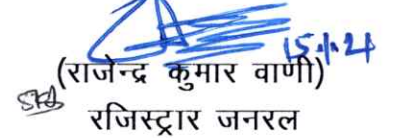 15.1.21
(राजेन्द्र कुमार वाणी)
रजिस्ट्रार जनरल